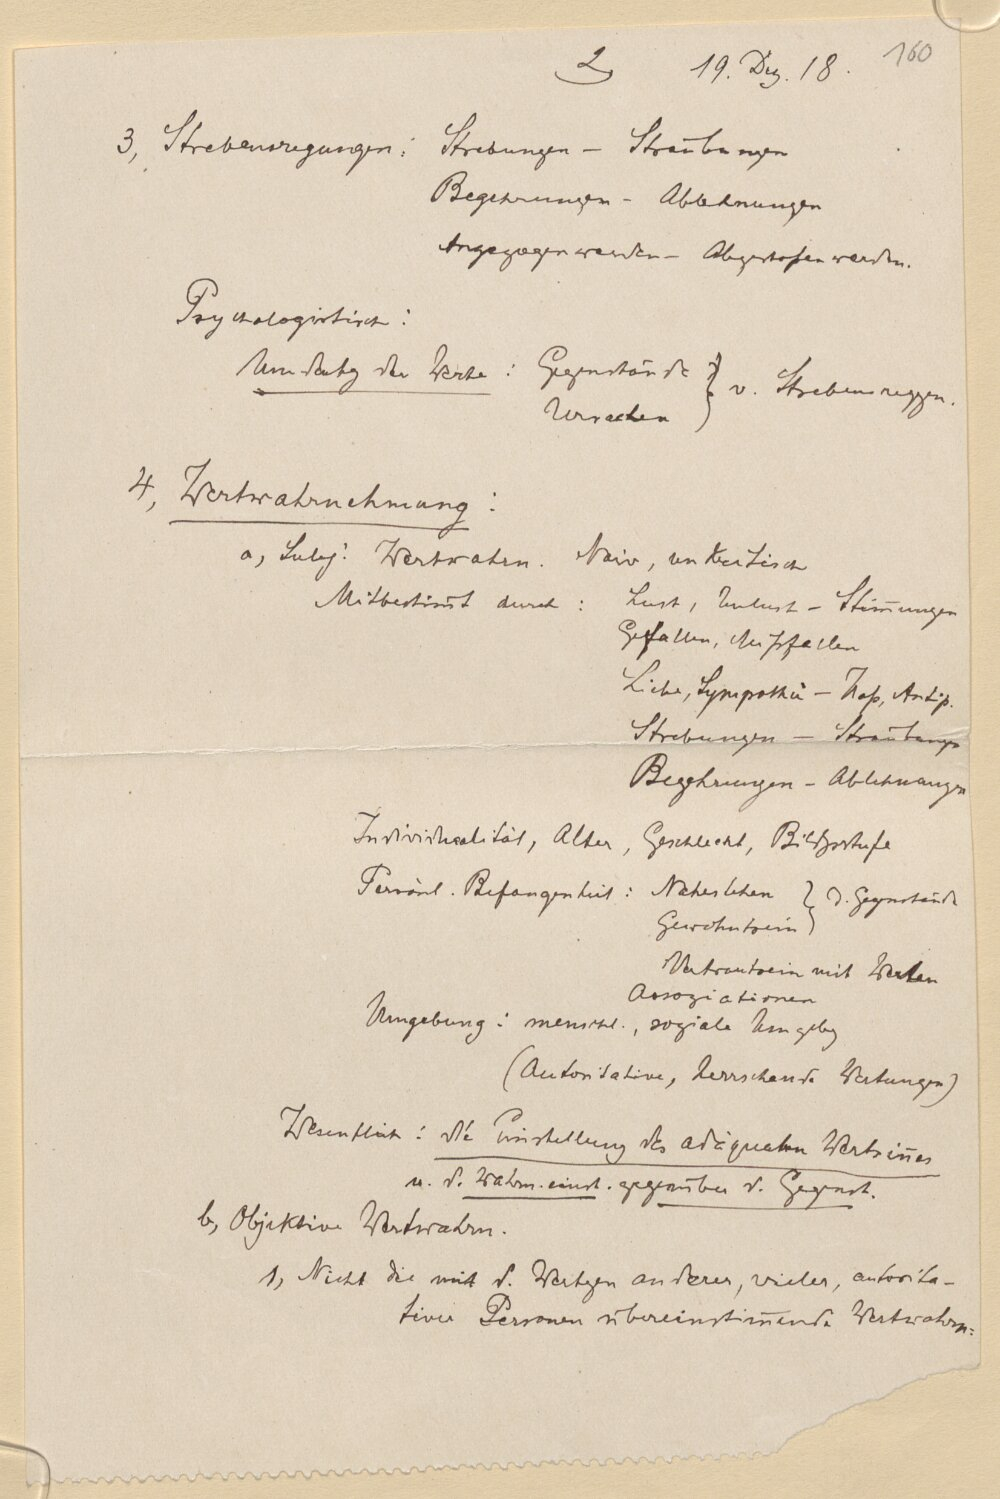 2) 19. Dez. 18. 160
3, Strebensregungen: Strebungen – Sträubungen
Begehrungen – Ablehnungen
Angezogenwerden – Abgestoßenwerden.
Psychologistisch:
Umdeutg der Werte: Gegenstände } v. Strebensreggen.
Ursachen
4, Wertwahrnehmung:
a, Subj. Wertwahrn. Naiv, unkritisch
Mitbestim̄t durch: Lust, Unlust – Stim̄ungen
Gefallen, Mißfallen
Liebe, Sympathie – Haß, Antip.
Strebungen – Sträubungen
Begehrungen – Ablehnungen
Individualität, Alter, Geschlecht, Bildgsstufe
Persönl. Befangenheit: Nahestehen } d. Gegenstände
Gewohntsein
Vertrautsein mit Werten
Assoziationen
Umgebung: menschl., soziale Umgebg
(Autoritative, herrschende Wertungen)
Wesentlich: die Einstellung des adäquaten Wertsin̄es
u. d. Wahrn.einst. gegenüber d. Gegenst.
b, Objektive Wertwahrn.
1, Nicht die mit d. Wertgen anderer, vieler, autorita-
tiver Personen übereinstim̄ende Wertwahrn: